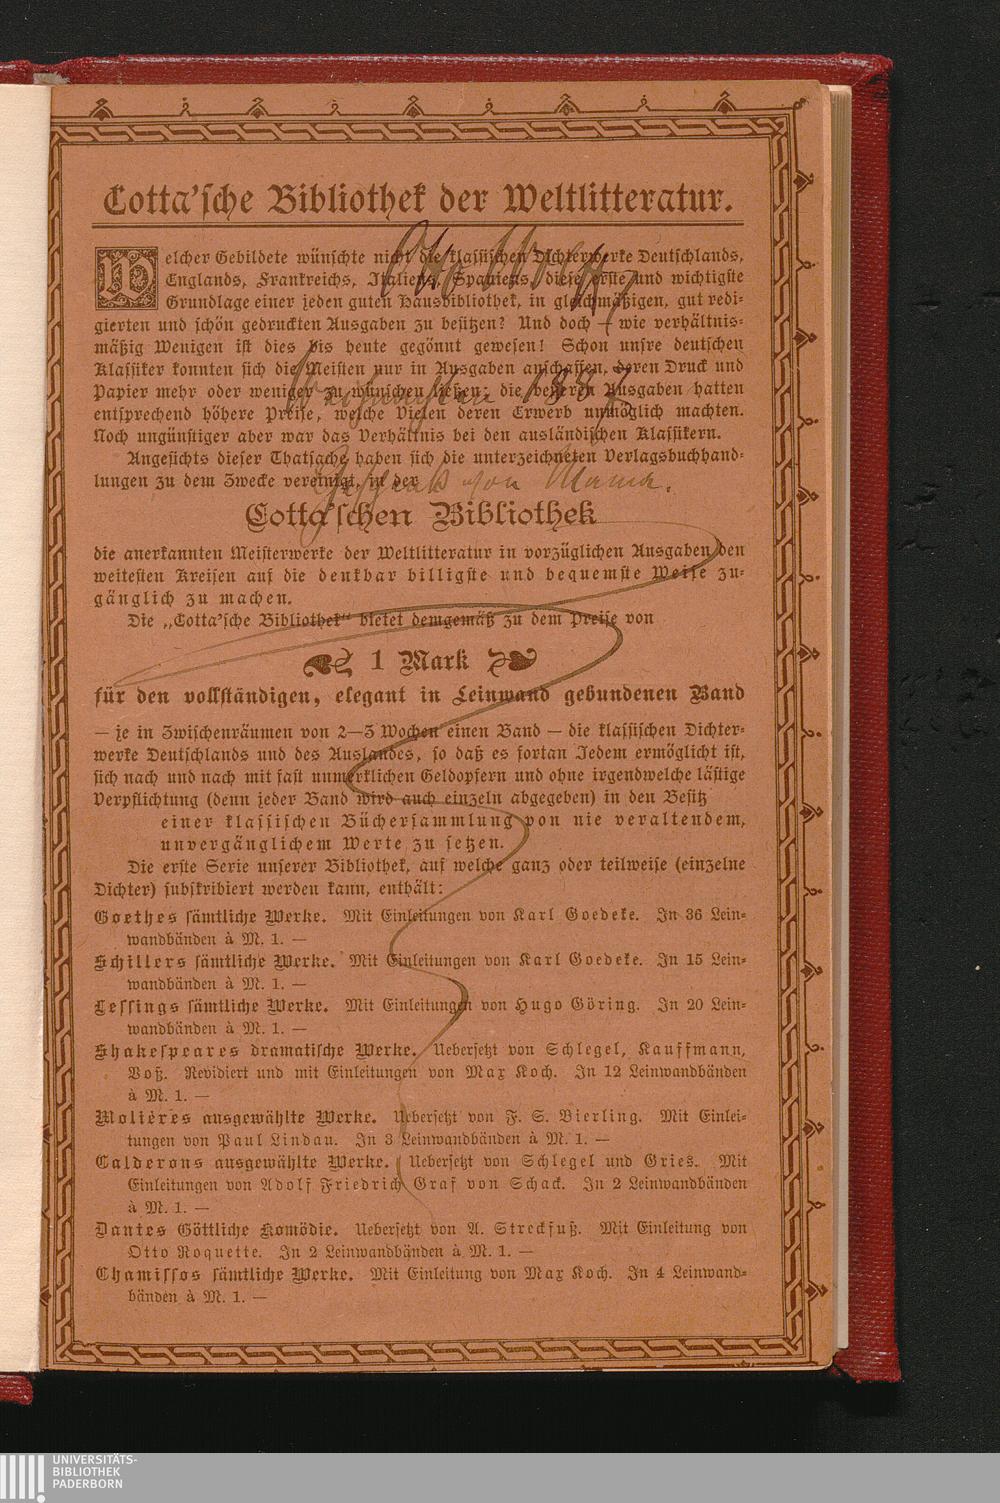 Cotta'sche Bibliothek der Weltlitteratur.
Welcher Gebildete wünschte nicht die klassischen Dichterwerke Deutschlands,
Englands, Frankreichs, Italiens, Spaniens, diese erste und wichtigste
Grundlage einer jeden guten Hausbibliothek, in gleichmäßigen, gut redi-
gierten und schön gedruckten Ausgaben zu besitzen? Und doch — wie verhältnis-
mäßig Wenigen ist dies bis heute gegönnt gewesen! Schon unsre deutschen
Klassiker konnten sich die Meisten nur in Ausgaben anschaffen, deren Druck und
Papier mehr oder weniger zu wünschen ließen; die besseren Ausgaben hatten
188
entsprechend höhere Preise, welche Vielen deren Erwerb unmöglich machten.
Noch ungünstiger aber war das Verhältnis bei den ausländischen Klassikern.
Angesichts dieser Thatsache haben sich die unterzeichneten Verlagsbuchhand-
lungen zu dem Zwecke vereinigt, in der
von Mama.
Cotta'schen Bibliothek
die anerkannten Meisterwerke der Weltlitteratur in vorzüglichen Ausgaben den
weitesten Kreisen auf die denkbar billigste und bequemste Weise zu-
gänglich zu machen.
Die „Cotta'sche Bibliothek" bietet demgemäß zu dem Preise von
1 Mark
für den vollständigen, elegant in Leinwand gebundenen Band
— je in Zwischenräumen von 2—3 Wochen einen Band — die klassischen Dichter-
werke Deutschlands und des Auslandes, so daß es fortan Jedem ermöglicht ist,
sich nach und nach mit fast unmerklichen Geldopfern und ohne irgendwelche lästige
Verpflichtung (denn jeder Band wird auch einzeln abgegeben) in den Besitz
einer klassischen Büchersammlung von nie veraltendem,
unvergänglichem Werte zu setzen.
Die erste Serie unserer Bibliothek, auf welche ganz oder teilweise (einzelne
Dichter) subskribiert werden kann, enthält:
Goethes sämtliche Werke. Mit Einleitungen von Karl Goedeke. In 36 Lein-
wandbänden à M. 1. —
Schillers sämtliche Werke. Mit Einleitungen von Karl Goedeke. In 15 Lein-
wandbänden à M. 1. —
Lessings sämtliche Werke. Mit Einleitungen von Hugo Göring. In 20 Lein-
wandbänden à M. 1. —
Shakespeares dramatische Werke. Uebersetzt von Schlegel, Kauffmann,
Voß. Revidiert und mit Einleitungen von Max Koch. In 12 Leinwandbänden
à M. 1. —
Molières ausgewählte Werke. Uebersetzt von F. S. Bierling. Mit Einlei-
tungen von Paul Lindau. In 3 Leinwandbänden à M. 1. —
Calderons ausgewählte Werke. Uebersetzt von Schlegel und Gries. Mit
Einleitungen von Adolf Friedrich Graf von Schack. In 2 Leinwandbänden
à M. 1. —
Dantes Göttliche Komödie. Uebersetzt von A. Streckfuß. Mit Einleitung von
Otto Roquette. In 2 Leinwandbänden à M. 1. —
Chamissos sämtliche Werke. Mit Einleitung von Max Koch. In 4 Leinwand-
bänden à M. 1. —
UNIVERSITÄTS-
BIBLIOTHEK
PADERBORN